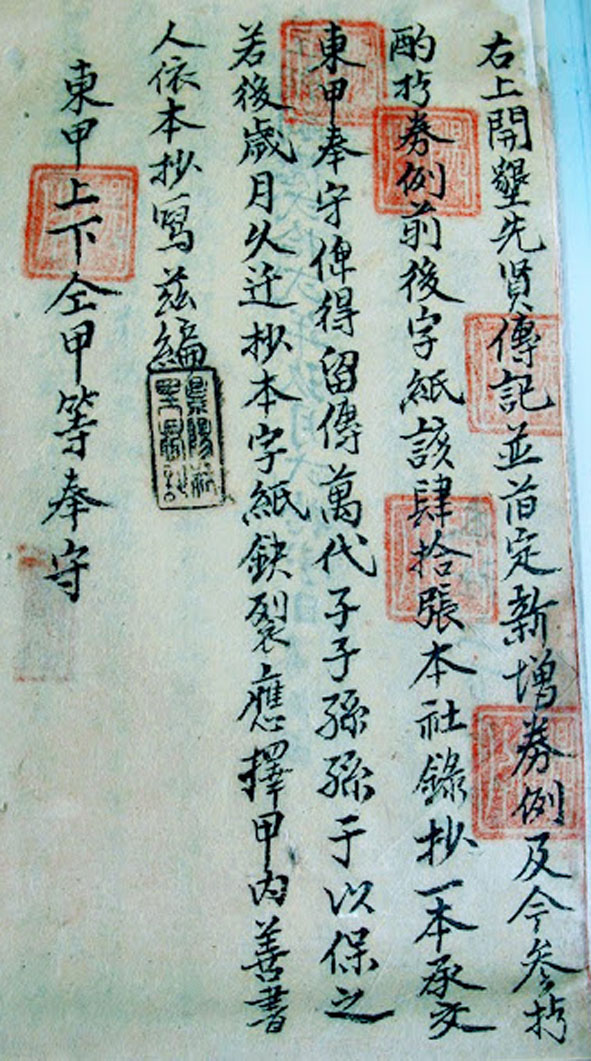 右上開墾先賢傳記並前定新增券例及今參拧
酌拧券例前後字紙該肆拾張本社錄抄一本承交
東甲奉守俾得留傳萬代子子孫孫于以保之
若後歲月久迁抄本字紙鈌裂應擇甲內善書
人依本抄寫玆編
東甲上下仝甲等奉守